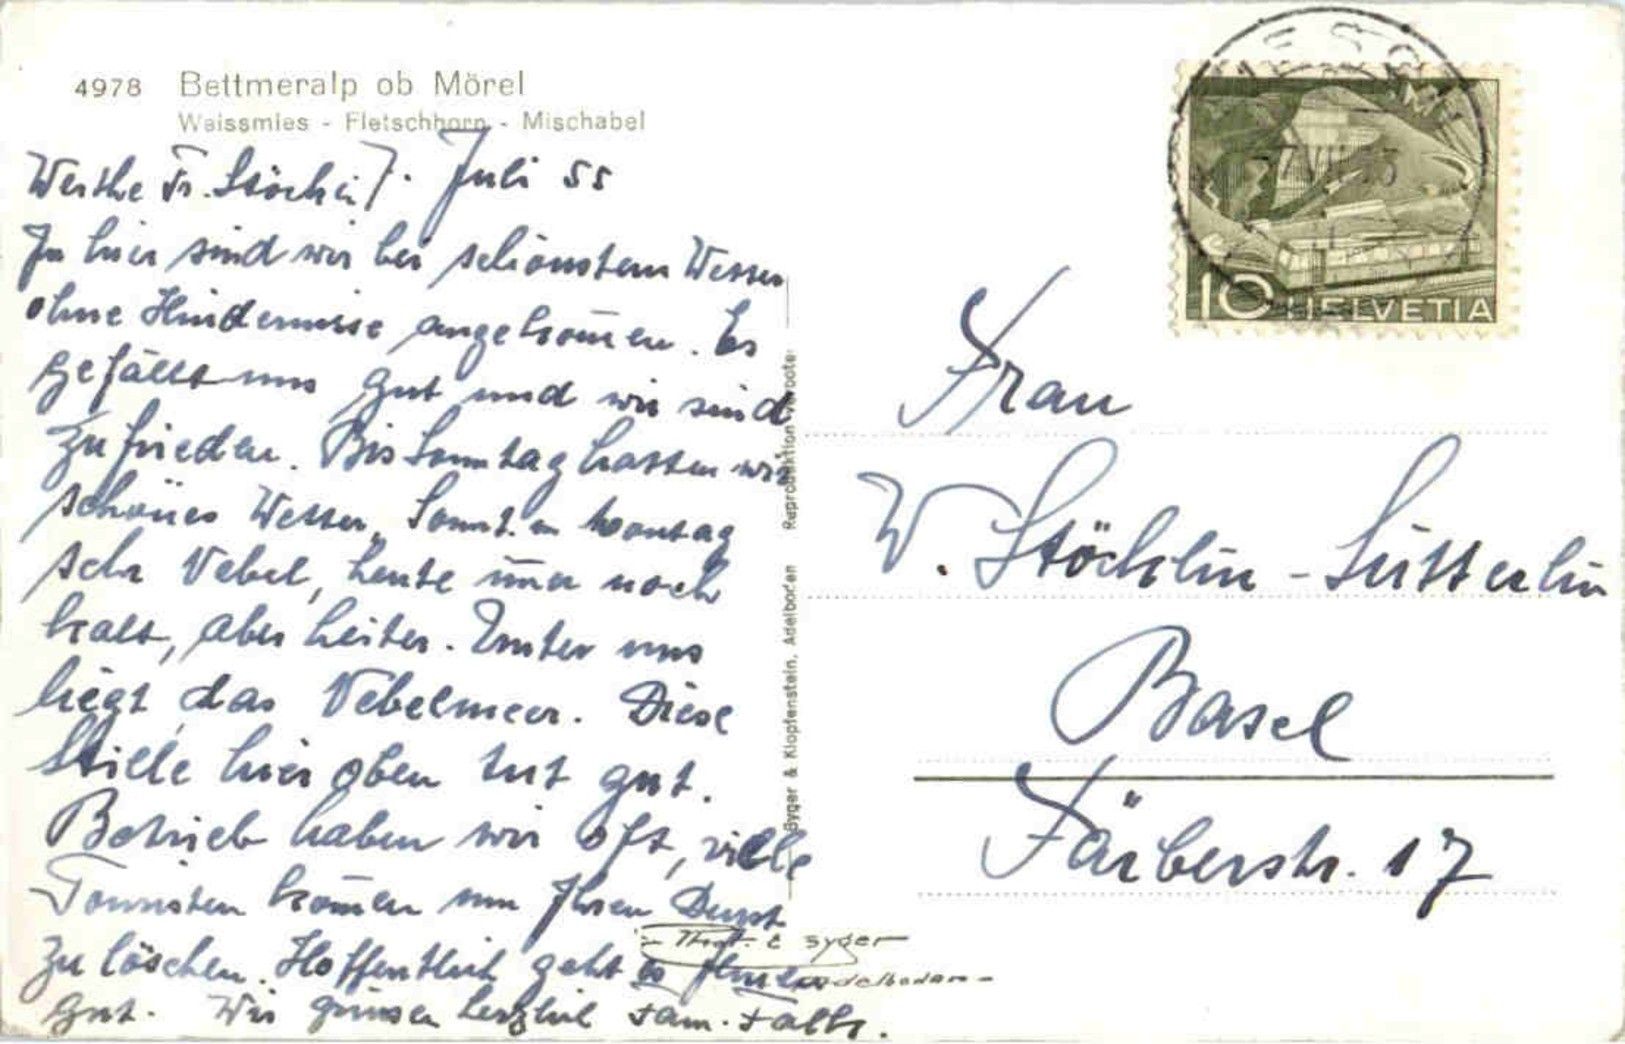 4978 Bettmeralp ob Mörel
Weissmies - Fletschhorn - Mischabel
Werthe Fr. Stöcklin 7. Juli 55
Ja hier sind wir bei schönstem Wetter
ohne Hindernisse angekom̄en. Es
gefällt uns gut und wir sind
zufrieden. Bis Sonntag hatten wir
schönes Wetter, Sonnt. u. Montag
sehr Nebel, heute im̄er noch
kalt, aber heiter. Unter uns
liegt das Nebelmeer. Diese
Stille hier oben tut gut.
Betrieb haben wir oft, viele
Touristen kom̄en um Ihren Durst
zu löschen. Hoffentlich geht es Ihnen
gut. Wir grüssen herzlich Fam.
Gyger & Klopfenstein, Adelboden Reproduktion verboten
Phot. E Gyger
Adelboden
10 HELVETIA
Frau
W. Stöcklin-Sütterlin
Basel
Färberstr. 17